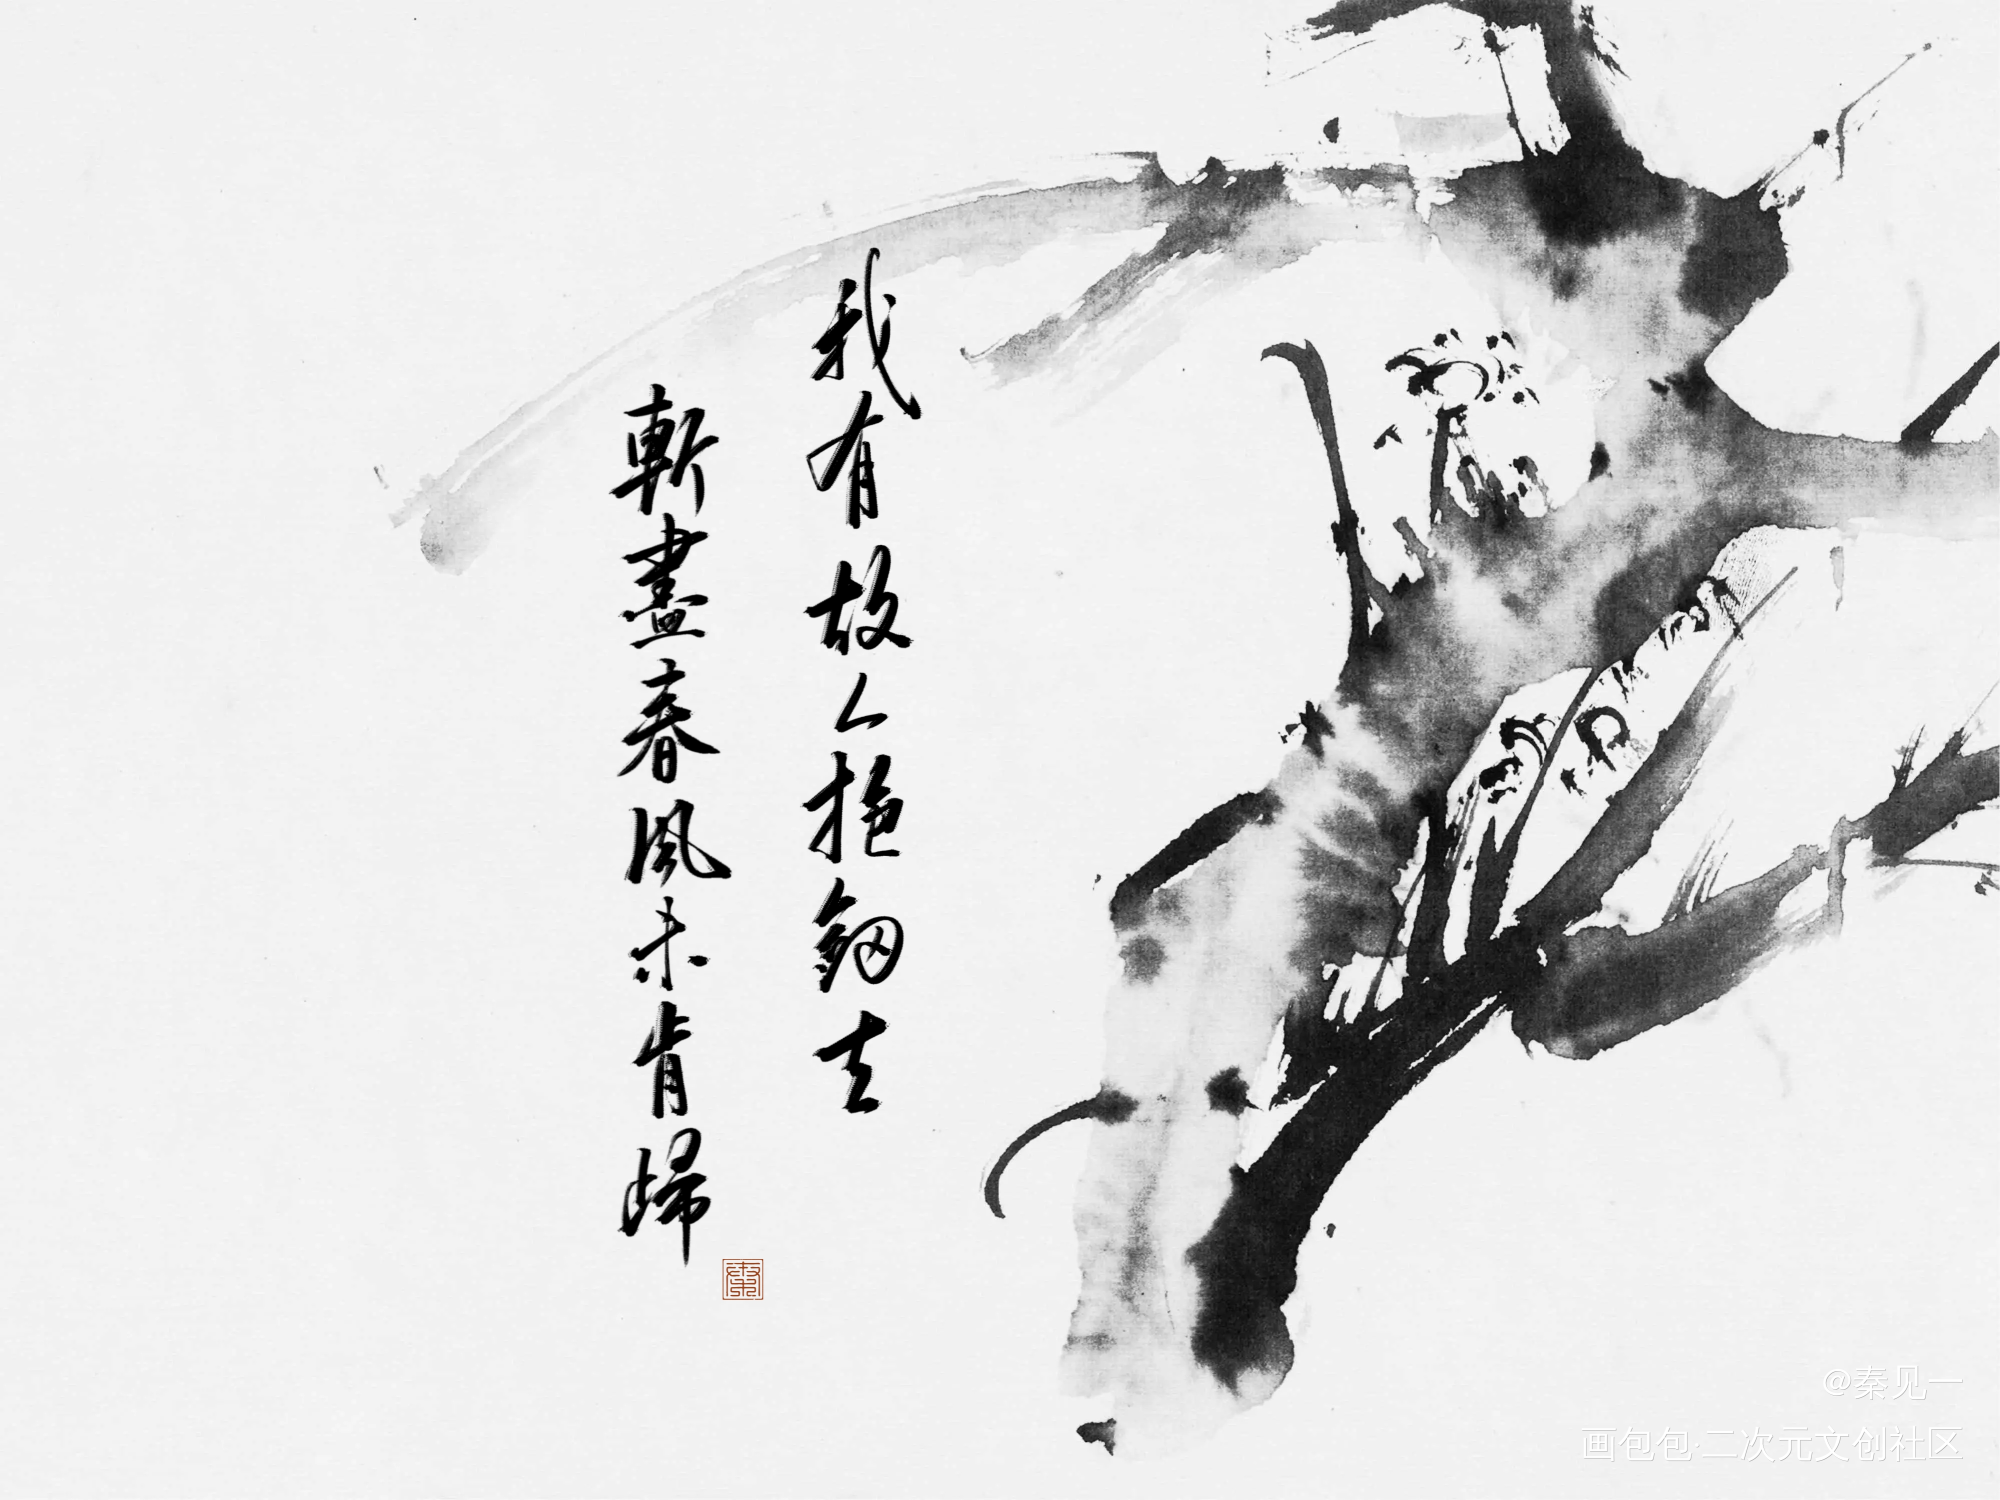 我有故人抱劒去
斬盡春風未肯歸
@秦见一
画包包·二次元文创社区